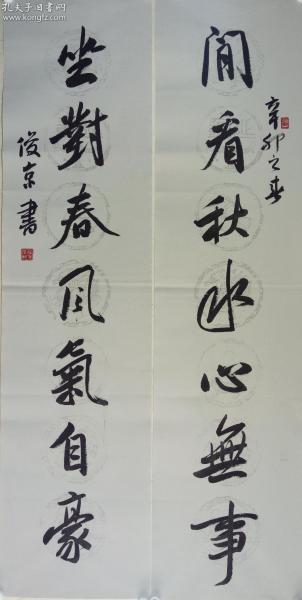 辛卯之春
閒看秋水心無事
坐對春風氣自豪
俊京書
孔夫子旧书网
www.kongfz.com